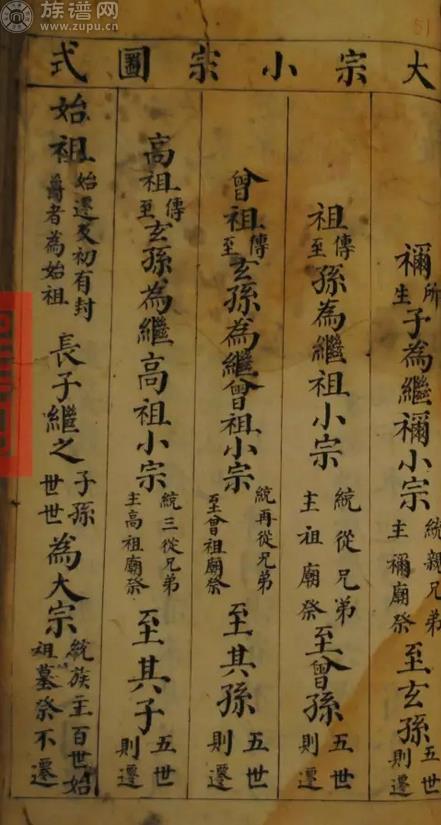 族谱网
www.zupu.cn
51
大宗小宗圖式
禰所生子為繼禰小宗統親兄弟主禰廟祭至玄孫五世則遷
祖傳至孫為繼祖小宗統從兄弟主祖廟祭至曾孫五世則遷
曾祖傳至玄孫為繼曾祖小宗統再從兄弟至曾祖廟祭至其孫五世則遷
高祖傳至玄孫為繼高祖小宗統三從兄弟主高祖廟祭至其子五世則遷
始祖始遷及初有封爵者為始祖長子繼之子孫世世為大宗統族主百世始祖墓祭不遷